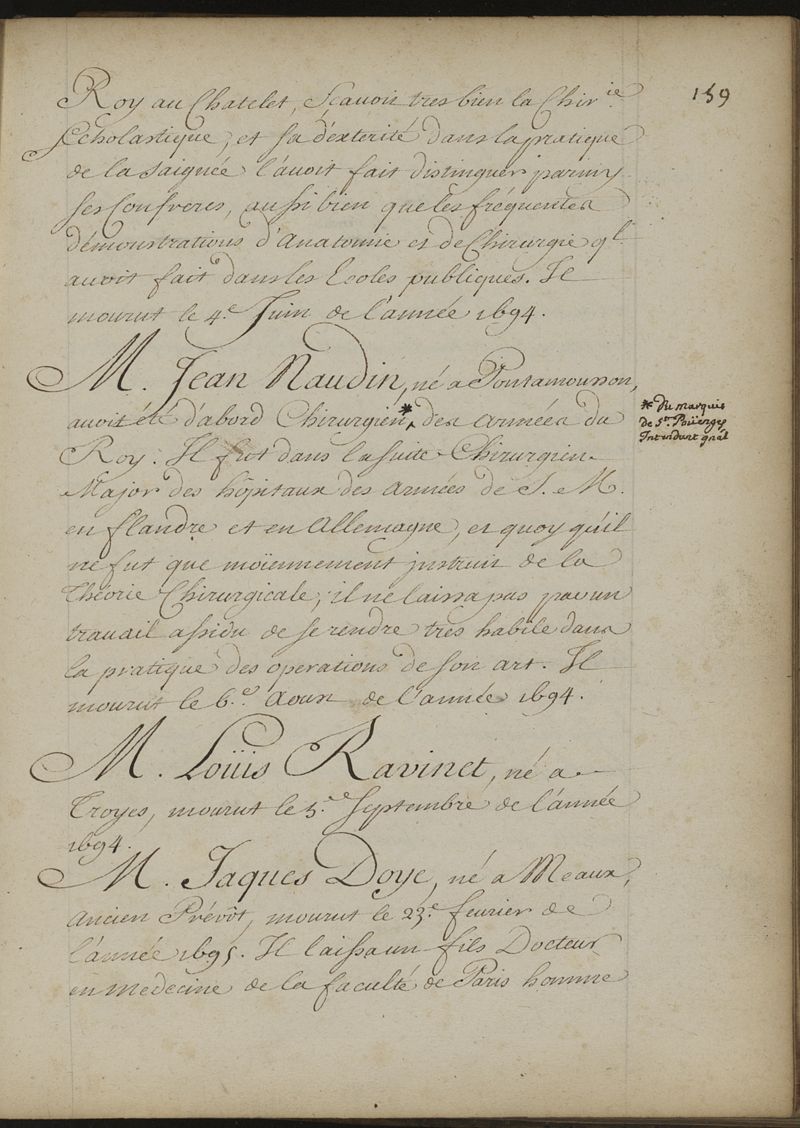 159
Roy au Chatelet, sçavoit tres bien la Chir.ie
Scholastique, et sa dexterité dans la pratique
de la saignée l'avoit fait distinguer parmy
ses Confreres, aussi bien que les fréquentes
démonstrations d'anatomie et de Chirurgie q.l
avoit fait dans les Ecoles publiques. Il
mourut le 4.e Juin de l'année 1694.
M. Jean Naudin, né a Pontamousson,
avoit été d'abord Chirurgien * des armées du
Roy. Il fut dans la suite Chirurgien
Major des hôpitaux des armées de S. M.
en flandre et en allemagne, et quoy qu'il
ne fut que moïennement instruit de la
Théorie Chirurgicale, il ne laissa pas par un
travail assidu de se rendre tres habile dans
la pratique des operations de son art. Il
mourut le 6.e Aoust de l'année 1694.
* du marquis
de S.t Poüenges
Intendant gnal
M. Loüis Ravinet, né a
Troyes, mourut le 5.e Septembre de l'année
1694.
M. Jaques Doye, né a Meaux,
ancien Prévôt, mourut le 23.e fevrier de
l'année 1695. Il laissa un fils Docteur
en medecine de la faculté de Paris homme